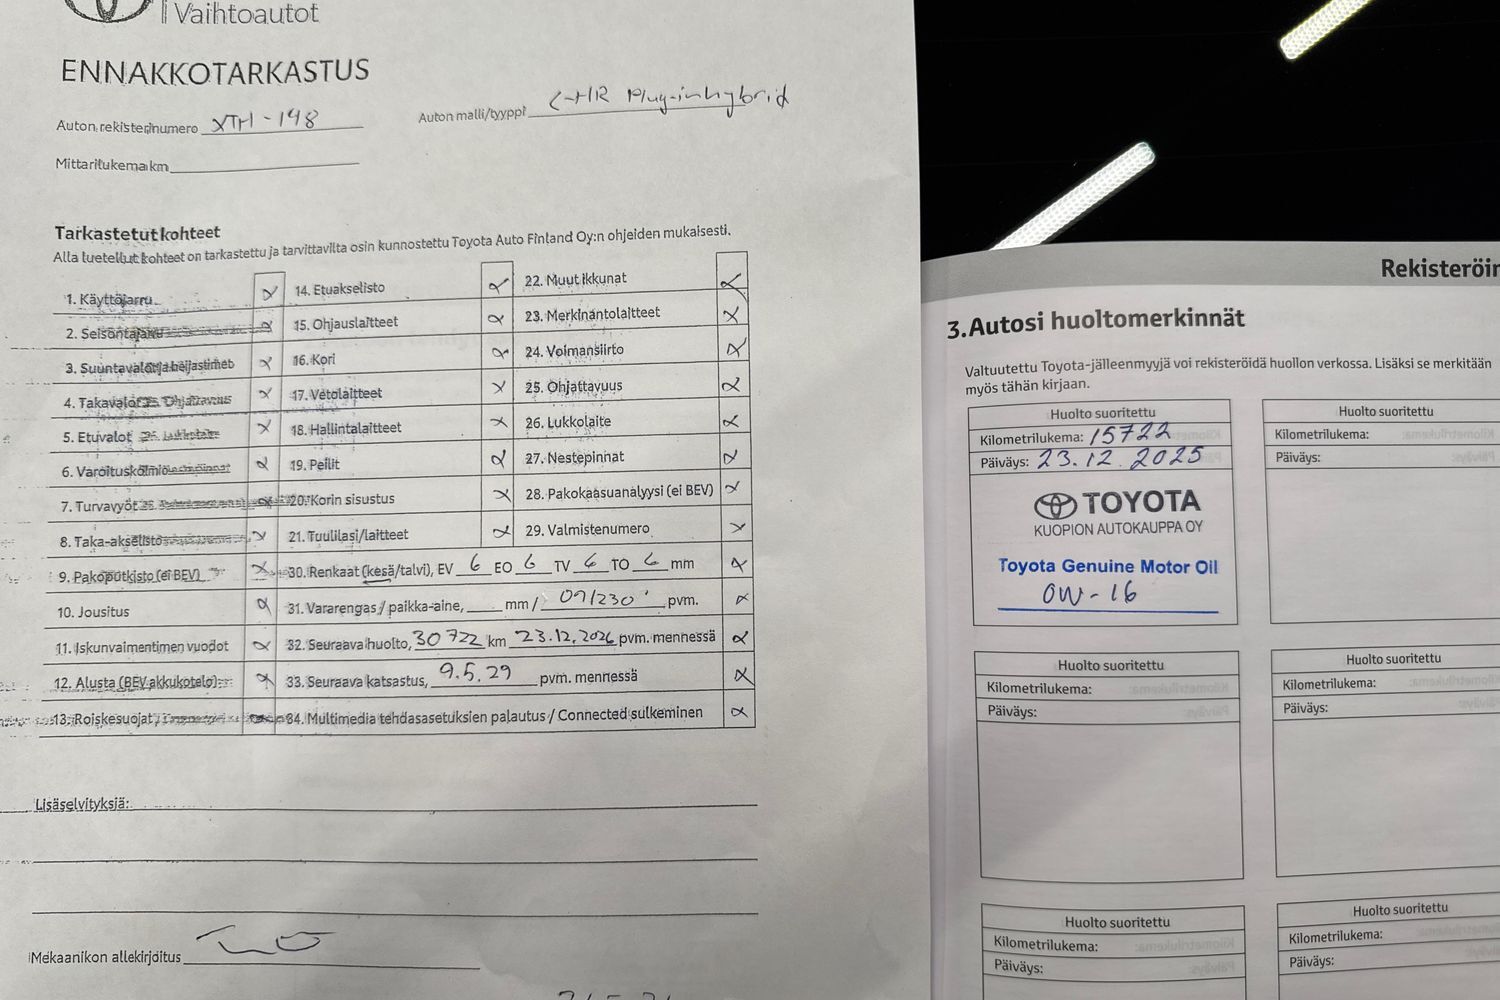 Vaihtoautot
ENNAKKOTARKASTUS
Auton rekisterinumero XTH-148
Auton malli/tyyppi C-HR Plug-in hybrid
Mittarilukema km
Tarkastetut kohteet
Alla luetellut kohteet on tarkastettu ja tarvittavilta osin kunnostettu Toyota Auto Finland Oy:n ohjeiden mukaisesti.
1. Käyttöjarru x
2. Seisontajarru x
3. Suuntavalot ja heijastimet x
4. Takavalot x
5. Etuvalot x
6. Varoituskolmio x
7. Turvavyöt x
8. Taka-akselisto x
9. Pakoputkisto (ei BEV) x
10. Jousitus x
11. Iskunvaimentimen vuodot x
12. Alusta (BEV akkukotelo) x
13. Roiskesuojat x
14. Etuakselisto x
15. Ohjauslaitteet x
16. Kori x
17. Vetolaitteet x
18. Hallintalaitteet x
19. Peilit x
20. Korin sisustus x
21. Tuulilasi/laitteet x
22. Muut ikkunat x
23. Merkinantolaitteet x
24. Voimansiirto x
25. Ohjattavuus x
26. Lukkolaite x
27. Nestepinnat x
28. Pakokaasuanalyysi (ei BEV) x
29. Valmistenumero x
30. Renkaat (kesä/talvi), EV 6 EO 6 TV 6 TO 6 mm x
31. Vararengas / paikka-aine, mm / 09/230 pvm. x
32. Seuraava huolto, 30722 km 23.12.2026 pvm. mennessä x
33. Seuraava katsastus, 9.5.29 pvm. mennessä x
34. Multimedia tehdasasetuksien palautus / Connected sulkeminen x
Lisäselvityksiä:
Mekaanikon allekirjoitus
Rekisteröin
3. Autosi huoltomerkinnät
Valtuutettu Toyota-jälleenmyyjä voi rekisteröidä huollon verkossa. Lisäksi se merkitään
myös tähän kirjaan.
Huolto suoritettu
Kilometrilukema: 15722
Päiväys: 23.12.2025
TOYOTA
KUOPION AUTOKAUPPA OY
Toyota Genuine Motor Oil
0W-16
Huolto suoritettu
Kilometrilukema:
Päiväys:
Huolto suoritettu
Kilometrilukema:
Päiväys:
Huolto suoritettu
Kilometrilukema:
Päiväys:
Huolto suoritettu
Kilometrilukema:
Päiväys:
Huolto suoritettu
Kilometrilukema:
Päiväys: